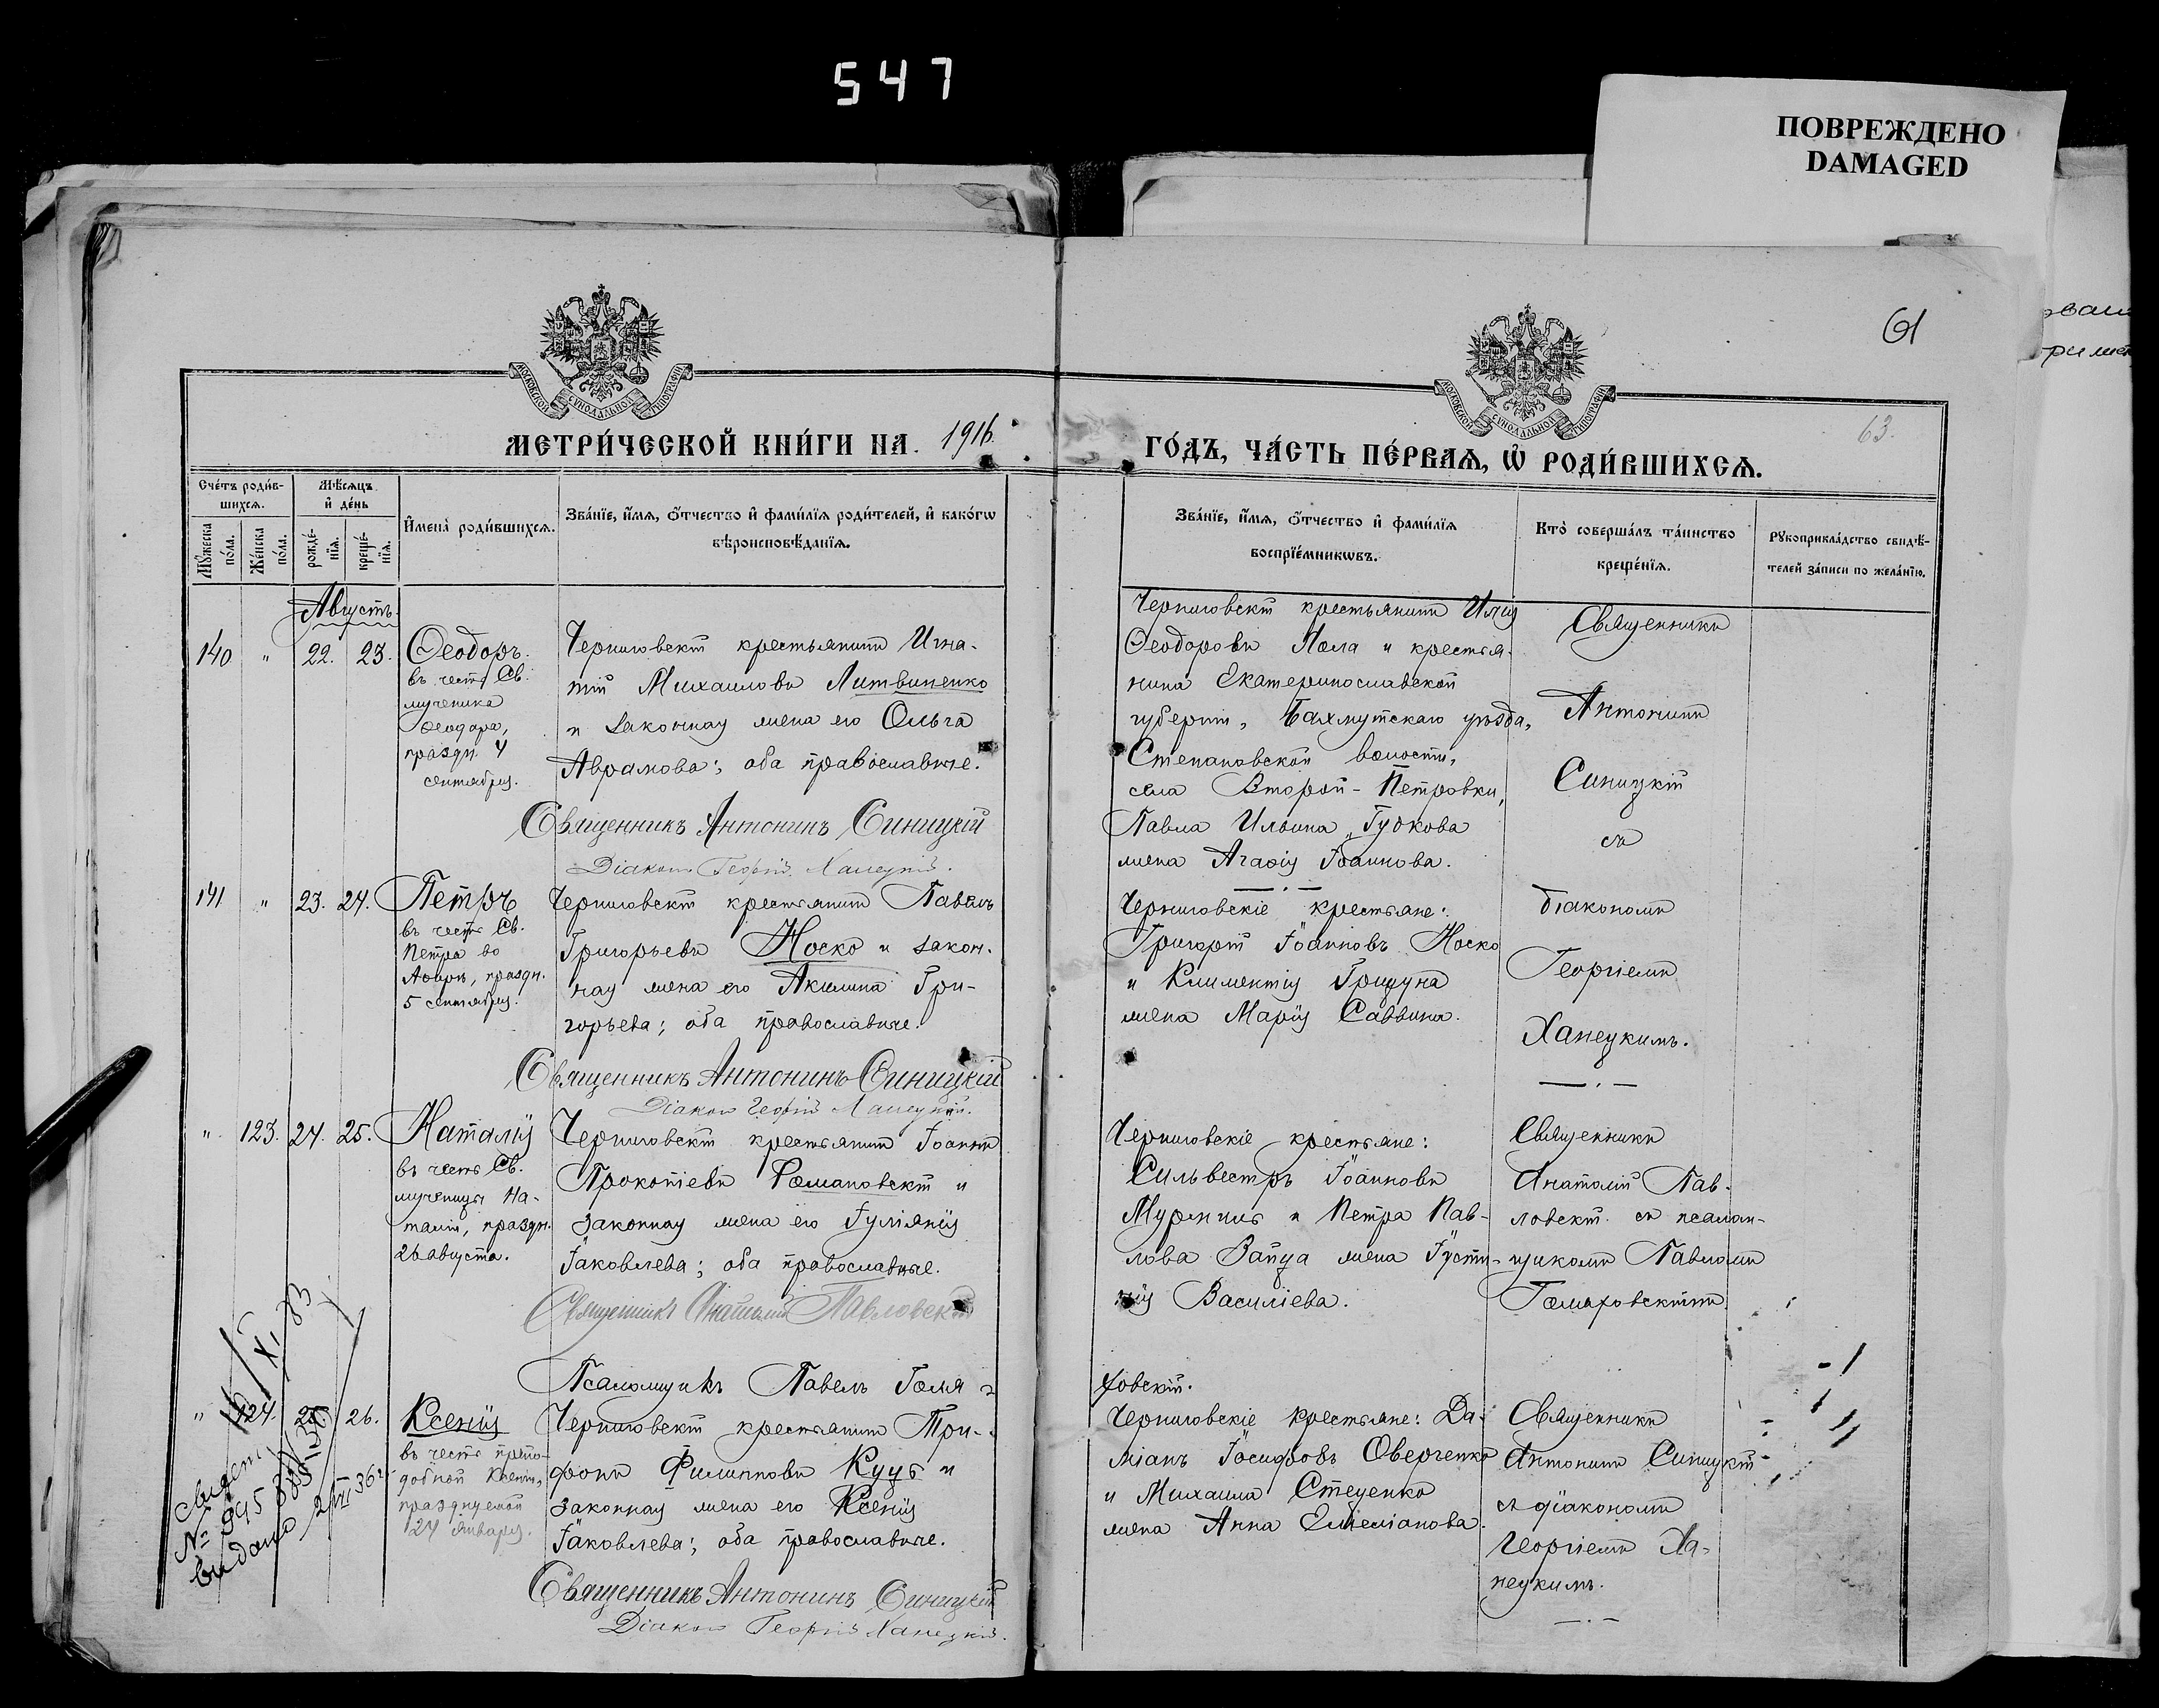 547
ПОВРЕЖДЕНО
DAMAGED
61
63.
МОСКОВСКОЙ СѴНОДАЛЬНОЙ ТИПОГРАФІИ
МОСКОВСКОЙ СѴНОДАЛЬНОЙ ТИПОГРАФІИ
МЕТРИ́ЧЕСКОЙ КНИ́ГИ НА 1916.
ГО́ДЪ, ЧА́СТЬ ПЕ́РВАѦ, Ѡ҆ РОДИ́ВШИХСѦ.
Сче́тъ роди́в-
шихсѧ.
Мꙋ́жеска по́ла.
Же́нска по́ла.
Мѣ́сѧцъ
и҆ де́нь
рожде́-нїѧ.
креще́-нїѧ.
И҆мена̀ роди́вшихсѧ.
Зва́нїе, и҆́мѧ, ѻ҆́тчество и҆ фами́лїѧ роди́телей, и҆ како́гѡ
вѣроисповѣ́данїѧ.
Зва́нїе, и҆́мѧ, ѻ҆́тчество и҆ фами́лїѧ
воспрїе́мникѡвъ.
Кто̀ соверша́лъ та́инство
креще́нїѧ.
Рꙋкоприкла́дство свидѣ́-
телей за́писи по жела́нїю.
Августъ.
140 " 22. 23.
Ѳеодоръ.
въ честь Св.
мученика
Ѳеодора,
праздн. 4
сентября.
Черниговскій крестьянинъ Игна-
тій Михаиловъ Литвиненко
и законная жена его Ольга
Аврамова; оба православные.
Священникъ Антонинъ Синицкій
Діаконъ Георгій Ханецкій.
Черниговскій крестьянинъ Илія
Ѳеодоровъ Пола и крестья-
нина Екатеринославской
губерніи, Бахмутскаго уѣзда,
Степановской волости,
села Второй-Петровки,
Павла Ильина Гудкова
жена Агаѳія Іоаннова.
Священникъ
Антонинъ
Синицкій
съ
діакономъ
Георгіемъ
Ханецкимъ.
141 " 23. 24.
Петръ
въ честь Св.
Петра во
Аѳирѣ, праздн.
5 сентября.
Черниговскій крестьянинъ Павелъ
Григорьевъ Носко и закон-
ная жена его Акилина Гри-
горьева; оба православные.
Священникъ Антонинъ Синицкій
Діаконъ Георгій Ханецкій.
Черниговскіе крестьяне:
Григорій Іоанновъ Носко
и Климентія Грицуна
жена Марія Саввина.
" 123. 24. 25.
Наталія
въ честь Св.
мученицы На-
таліи, праздн.
26 августа.
Черниговскій крестьянинъ Іоаннъ
Прокопіевъ Романовскій и
законная жена его Іуліянія
Іаковлева; оба православные.
Священникъ Анатолій Павловскій
Псаломщикъ Павелъ Голя-
ховскій.
Черниговскіе крестьяне:
Сильвестръ Іоанновъ
и Петра Пав-
лова Зайца жена Іусти-
нія Василіева.
Священникъ
Анатолій Пав-
ловскій съ псалом-
щикомъ Павломъ
Голяховскимъ.
" 124. 25. 26.
Ксенія
въ честь препо-
добной Ксеніи,
празднуемой
24 января.
Черниговскій крестьянинъ Три-
фонъ Филипповъ Куцъ и
законная жена его Ксенія
Іаковлева; оба православные.
Священникъ Антонинъ Синицкій
Діаконъ Георгій Ханецкій.
Черниговскіе крестьяне: Да-
міанъ Іосифовъ Оверченко
и Михаила Стеценко
жена Анна Емеліанова.
Священникъ
Антонинъ Синицкій
съ діакономъ
Георгіемъ Ха-
нецкимъ.
видано